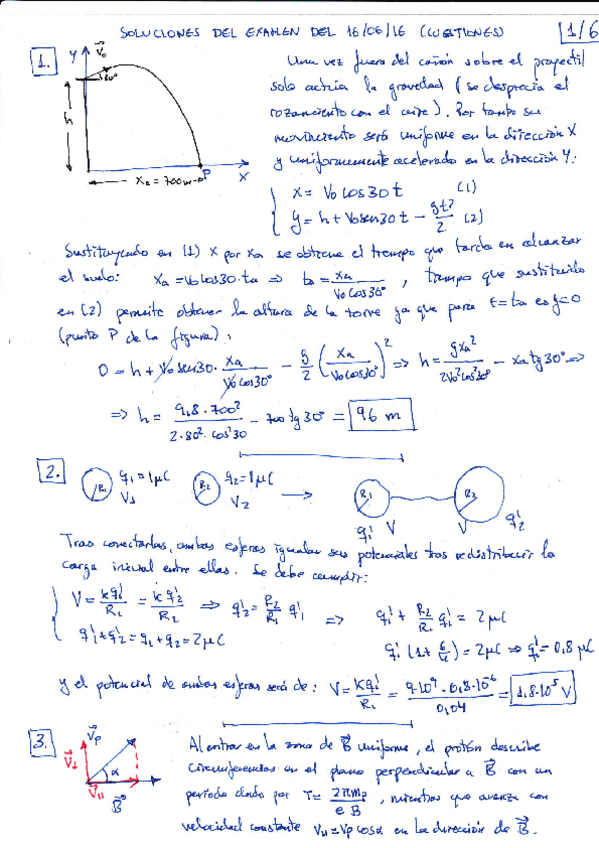 SOLUCIONES DEL EXAMEN DEL 16/06/16 (CUESTIONES) 1/6
1.
y V₀ 30° h x_a = 700 m P x
Una vez fuera del cañón sobre el proyectil
solo actúa la gravedad (se desprecia el
rozamiento con el aire). Por tanto su
movimiento será uniforme en la dirección X
y uniformemente acelerado en la dirección Y:
x = V₀ cos30 t (1)
y = h + V₀ sen30 t - gt²/2 (2)
Sustituyendo en (1) x por x_a se obtiene el tiempo que tarda en alcanzar
el suelo: x_a = V₀ cos30 · t_a ⇒ t_a = x_a / V₀ cos30°, tiempo que sustituido
en (2) permite obtener la altura de la torre ya que para t = t_a es y = 0
(punto P de la figura),
0 = h + V₀ sen30 · x_a / V₀ cos30° - g/2 (x_a / V₀ cos30°)² ⇒ h = g x_a² / 2V₀² cos²30° - x_a tg30° ⇒
⇒ h = 9,8 · 700² / 2 · 80² · cos²30 - 700 tg30° = 96 m
2.
R₁ q₁ = 1μC V₁ R₂ q₂ = 1μC V₂ → R₁ q₁' V R₂ V q₂'
Tras conectarlas, ambas esferas igualan sus potenciales tras redistribuir la
carga inicial entre ellas. Se debe cumplir:
V = kq₁'/R₁ = kq₂'/R₂ ⇒ q₂' = R₂/R₁ q₁' ⇒ q₁' + R₂/R₁ q₁' = 2μC
q₁' + q₂' = q₁ + q₂ = 2μC q₁' (1 + 6/4) = 2μC ⇒ q₁' = 0,8 μC
y el potencial de ambas esferas será de: V = kq₁'/R₁ = 9·10⁹ · 0,8·10⁻⁶ / 0,04 = 1,8·10⁵ V
3.
V⊥ Vp α V∥ B
Al entrar en la zona de B uniforme, el protón describe
circunferencias en el plano perpendicular a B con un
periodo dado por T = 2πmp / eB, mientras que avanza con
velocidad constante V∥ = Vp cosα en la dirección de B.